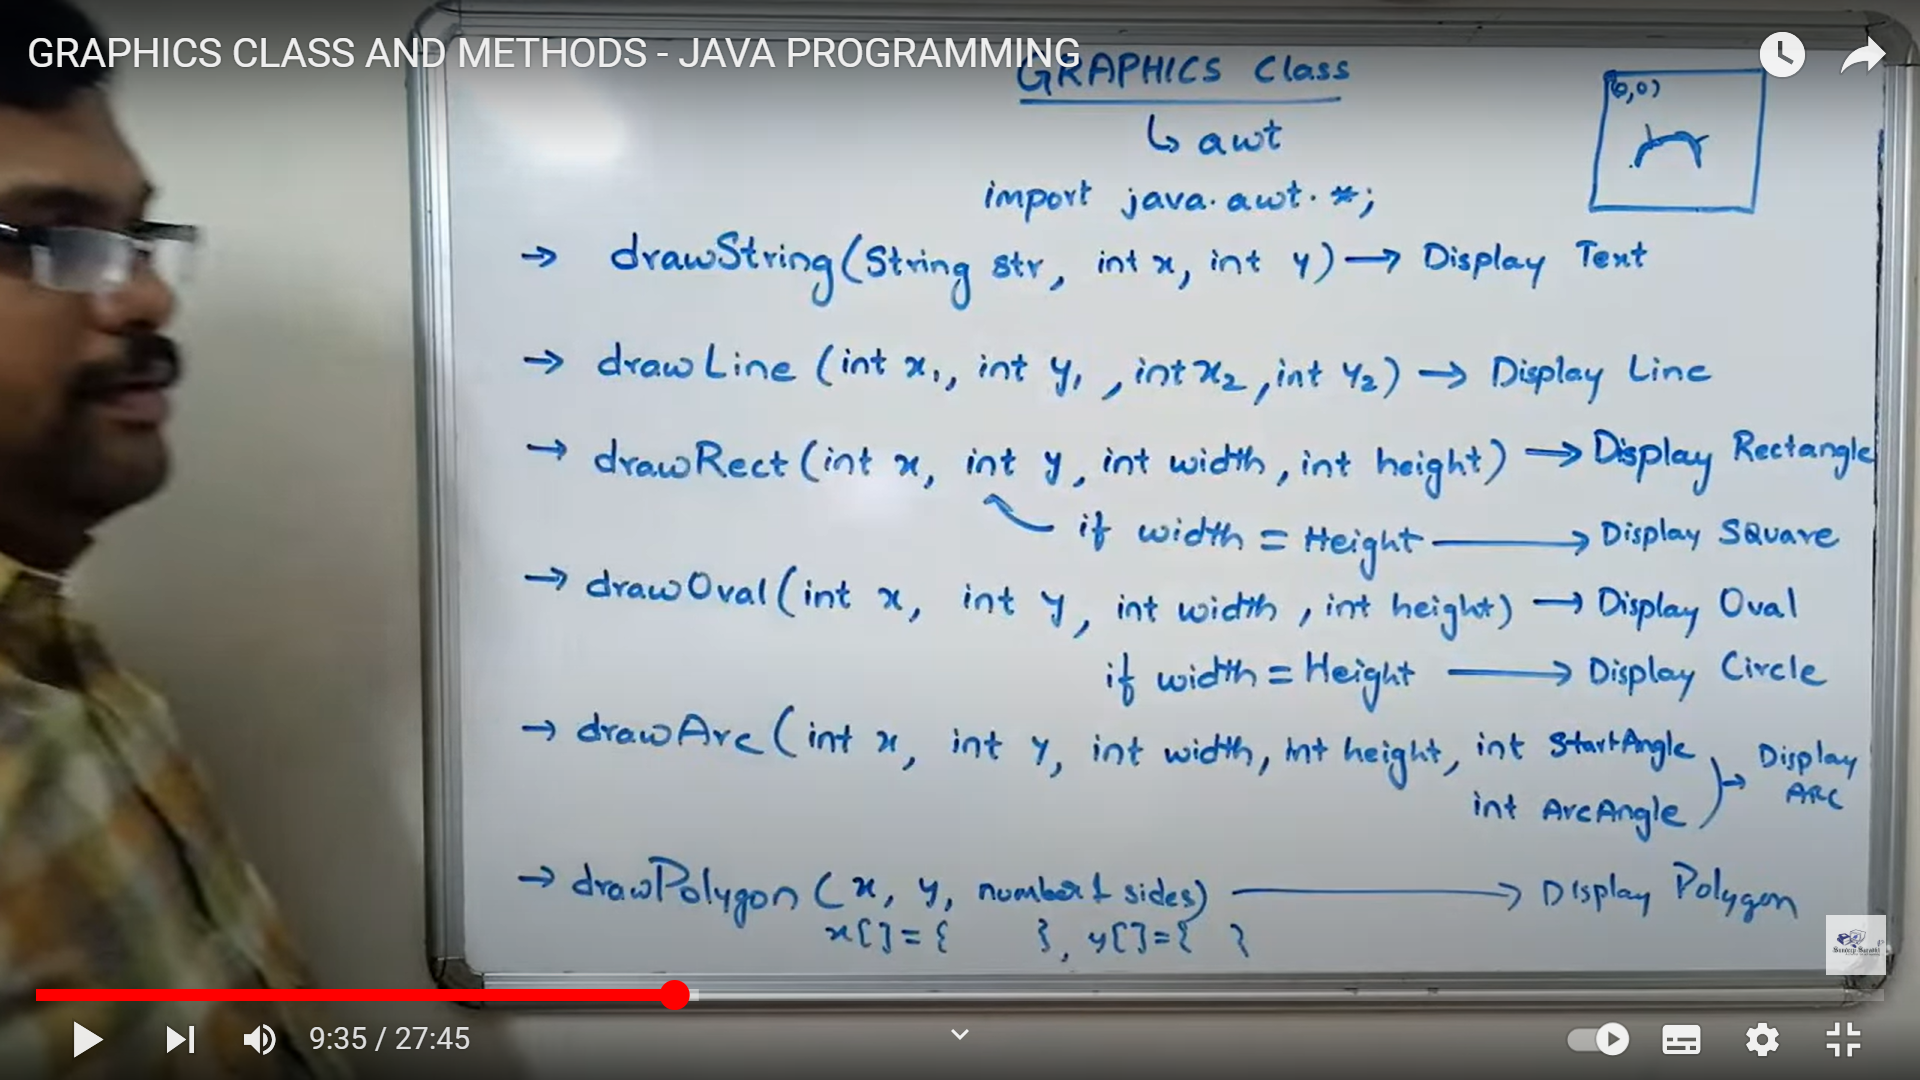 GRAPHICS CLASS AND METHODS - JAVA PROGRAMMING
GRAPHICS Class
↳ awt
(0,0)
import java.awt.*;
→ drawString(String str, int x, int y) → Display Text
→ drawLine (int x₁, int y₁, int x₂, int y₂) → Display Line
→ drawRect (int x, int y, int width, int height) → Display Rectangle
if width = Height → Display Square
→ drawOval (int x, int y, int width, int height) → Display Oval
if width = Height → Display Circle
→ drawArc (int x, int y, int width, int height, int StartAngle
int ArcAngle) → Display ARC
→ drawPolygon (x, y, number of sides) → Display Polygon
x[] = { }, y[] = { }
9:35 / 27:45